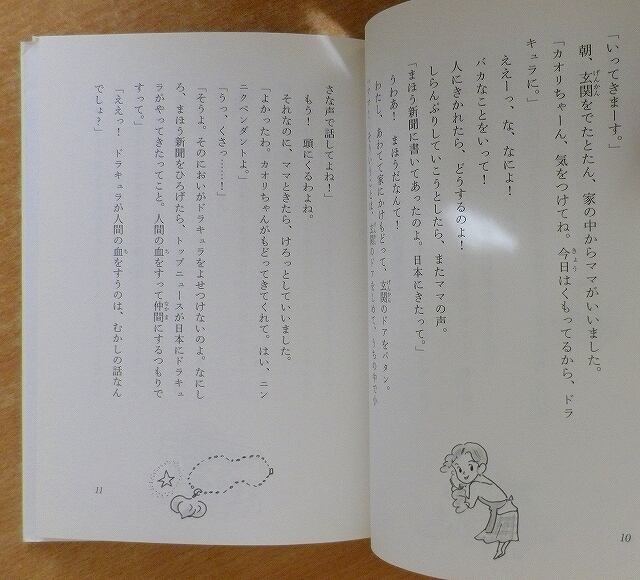 「いってきまーす。」
朝、玄関をでたとたん、家の中からママがいいました。
「カオリちゃーん、気をつけてね。今日はくもってるから、ドラ
キュラに。」
ええーっ、な、なによ!
バカなことをいって!
人にきかれたら、どうするのよ!
しらんぷりしていこうとしたら、またママの声。
「まほう新聞に書いてあったのよ。日本にきたって。」
うわあ! まほうだなんて!
わたし、あわてて家にかけもどって、玄関のドアをバタン。
10
さな声で話してよね!」
もう! 頭にくるわよね。
それなのに、ママときたら、けろっとしていいました。
「よかったわ。カオリちゃんがもどってきてくれて。はい、ニン
ニクペンダントよ。」
「うっ、くさっ……!」
「そうよ。そのにおいがドラキュラをよせつけないのよ。なにし
ろ、まほう新聞をひろげたら、トップニュースが日本にドラキュ
ラがやってきたってこと。人間の血をすって仲間にするつもりで
すって。」
「ええっ! ドラキュラが人間の血をすうのは、むかしの話なん
でしょ?」
11